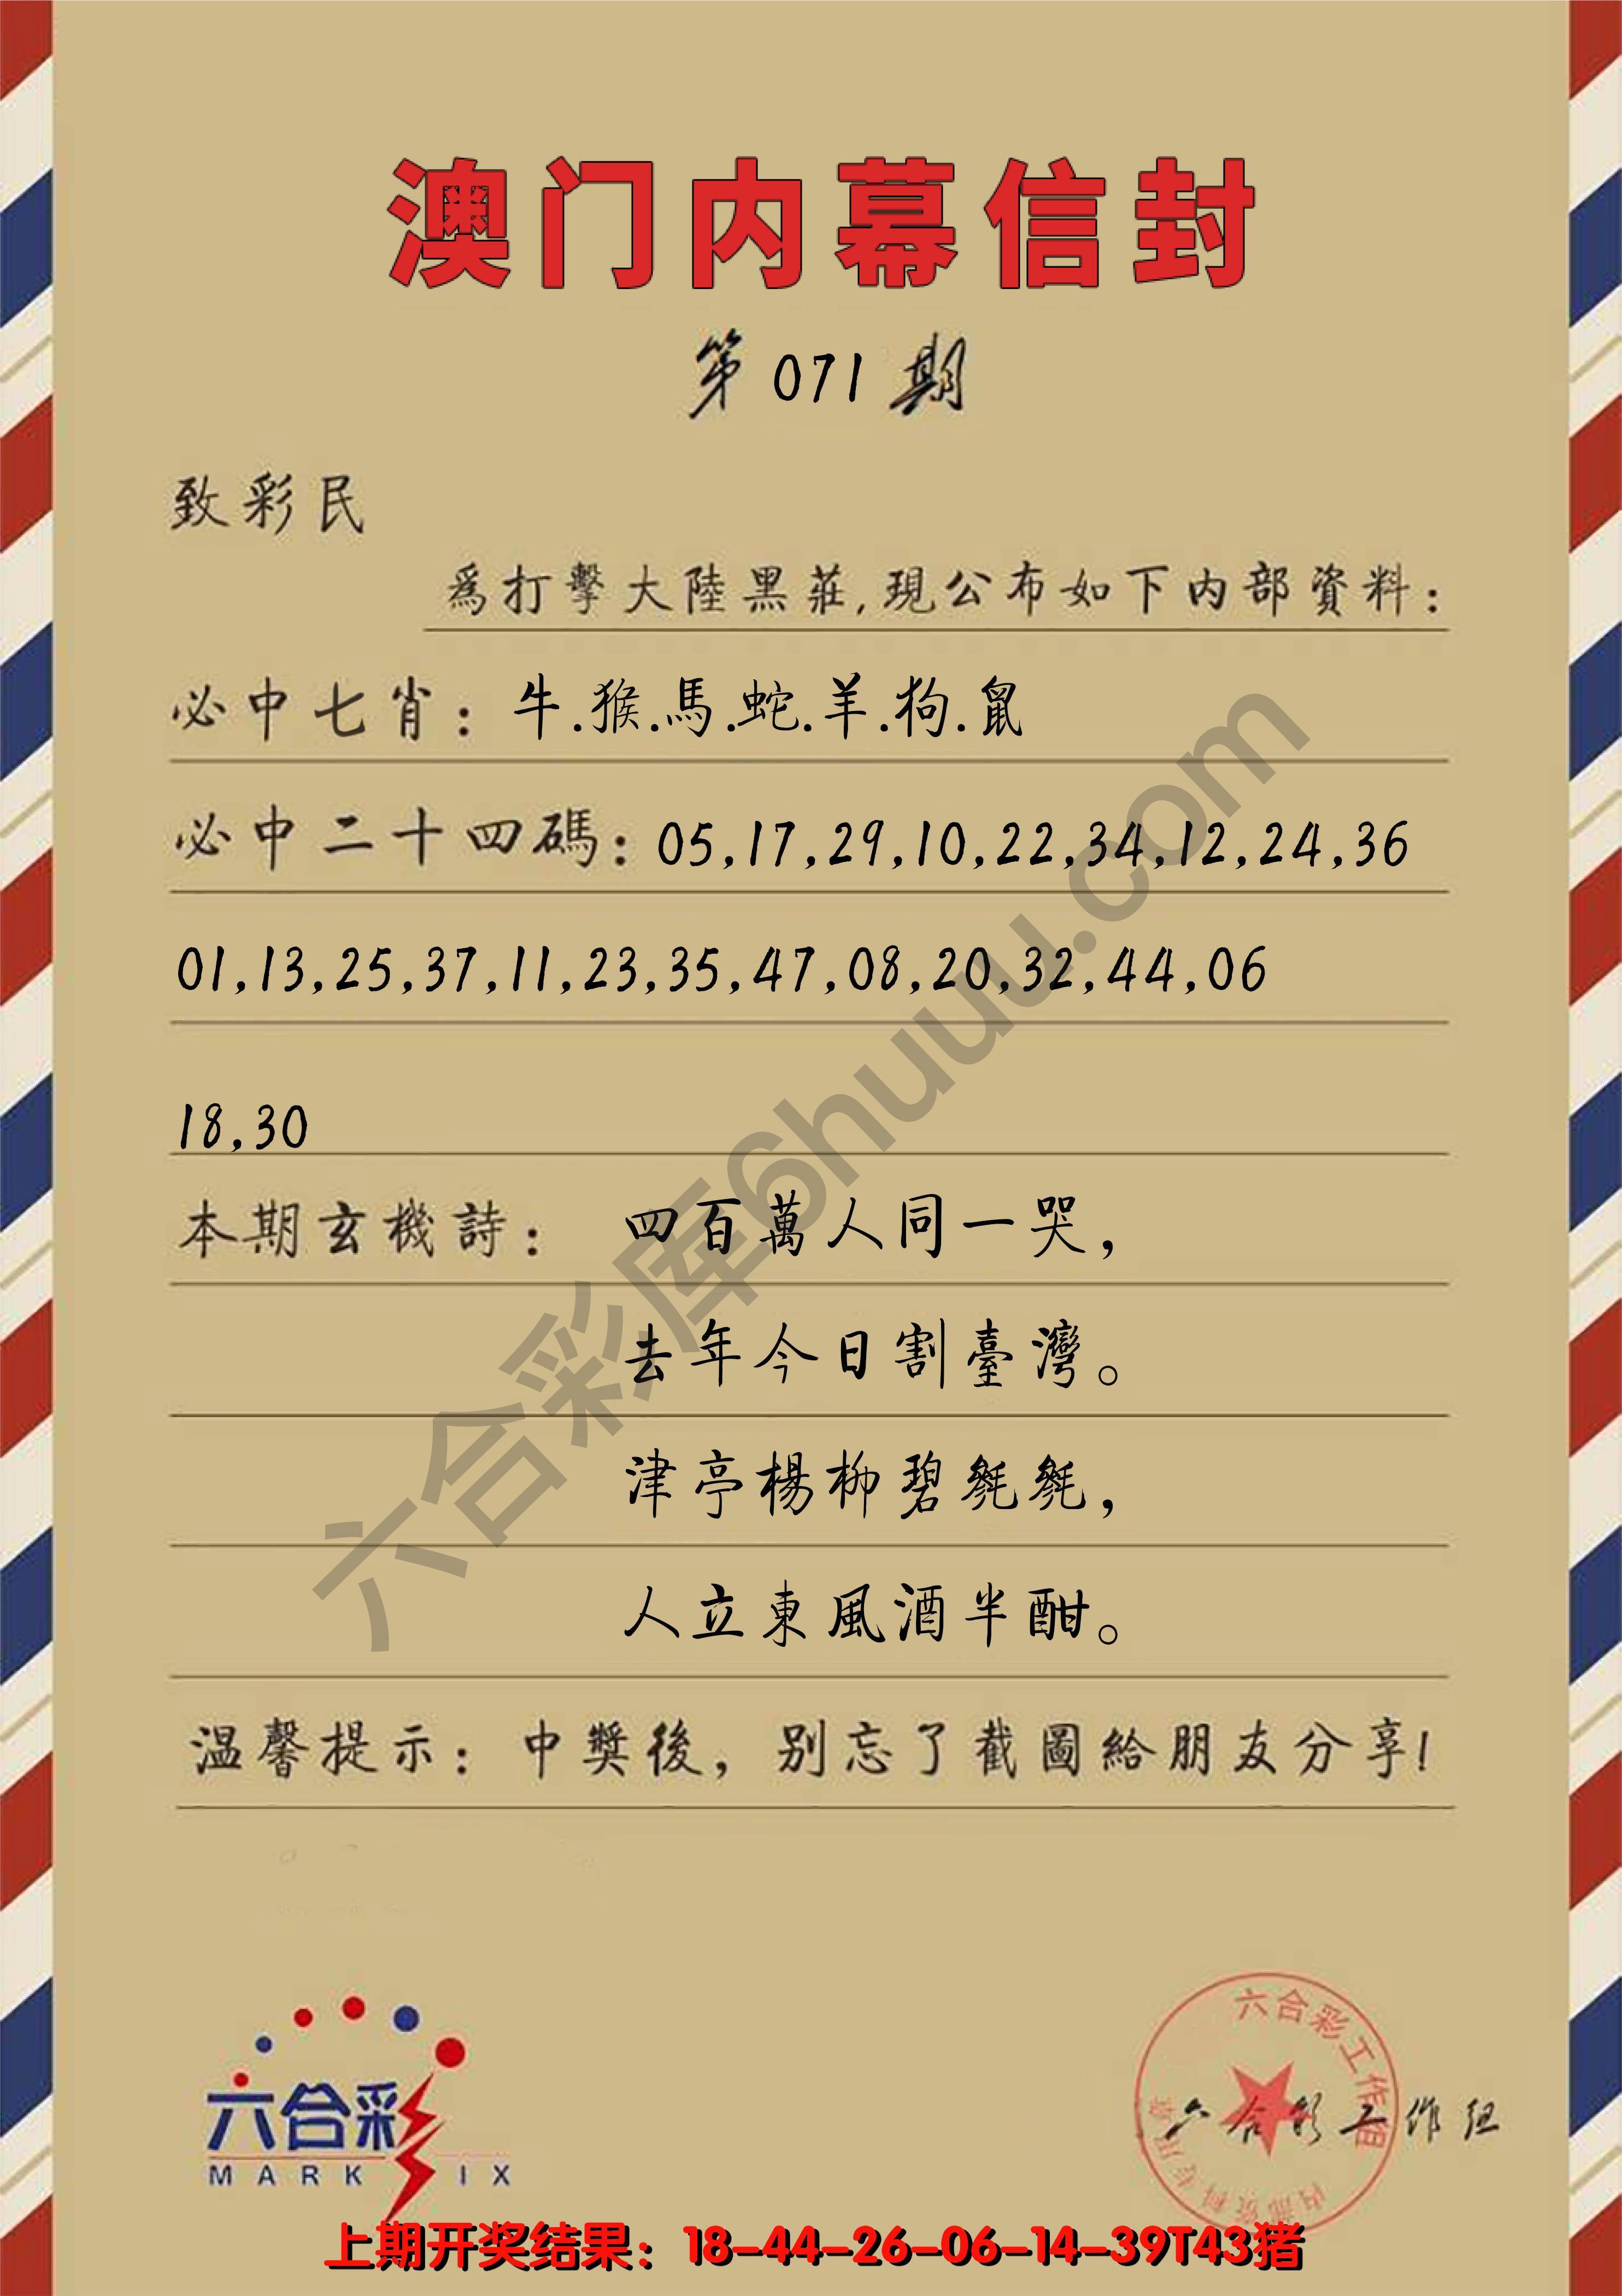 澳门内幕信封
第071期
致彩民
為打擊大陸黑莊,現公布如下内部資料:
必中七肖:牛.猴.馬.蛇.羊.狗.鼠
必中二十四碼:05,17,29,10,22,34,12,24,36
01,13,25,37,11,23,35,47,08,20,32,44,06
18,30
本期玄機詩:四百萬人同一哭,
去年今日割臺灣。
津亭楊柳碧毿毿,
人立東風酒半酣。
温馨提示:中獎後,别忘了截圖給朋友分享!
六合彩库6huuu.com
六合彩
MARK IX
六合彩工作组
内部资料专用章
六合彩工作组
上期开奖结果:18-44-26-06-14-39T43猪